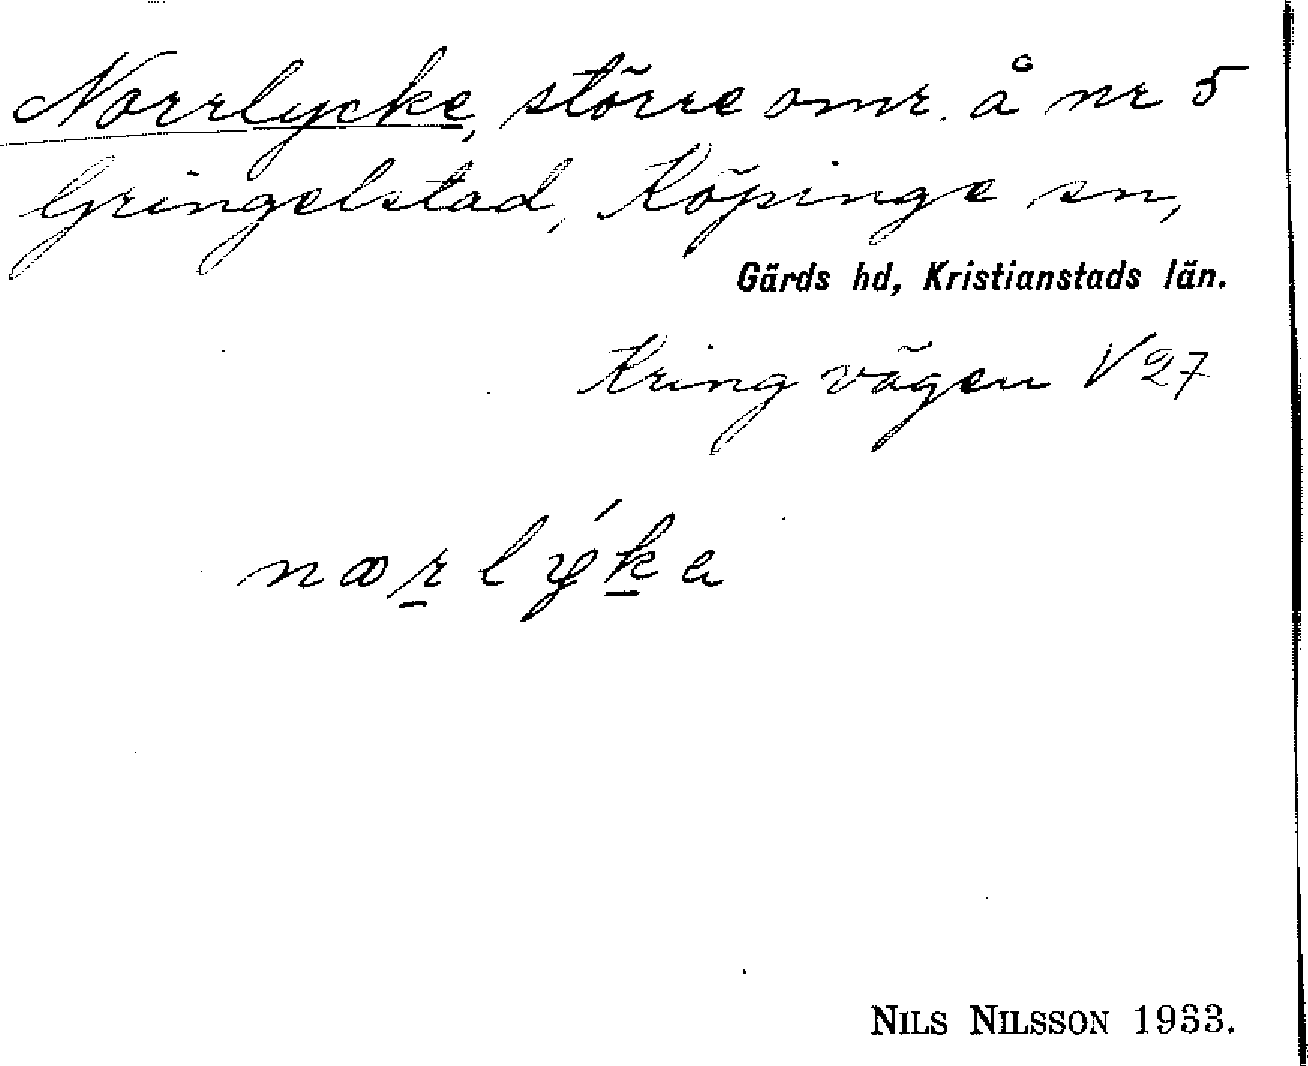 Norrlycke, större omr. å nr 5
Gringelstad, Köpinge sn,
Gärds hd, Kristianstads län.
Kring vägen V 27
nꝏr̲lýk̲a
NILS NILSSON 1933.